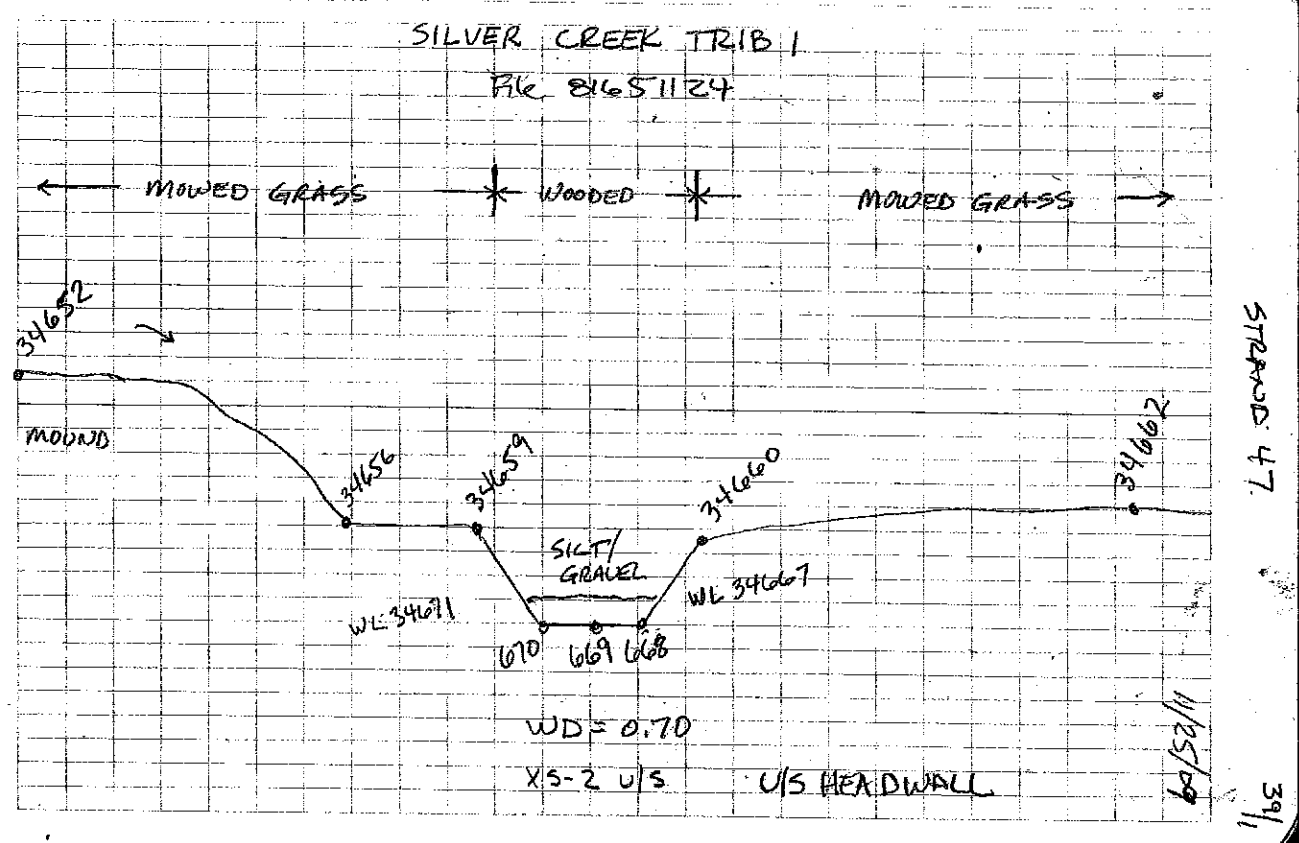 SILVER CREEK TRIB 1
File 81651124
MOWED GRASS
WOODED
MOWED GRASS
34652
MOUND
34656
34659
34660
34662
SILT/
GRAVEL
WL 34671
WL 34667
670
669
668
WD = 0.70
XS-2 U/S
U/S HEADWALL
STRAND 47.
11/25/09
39/1